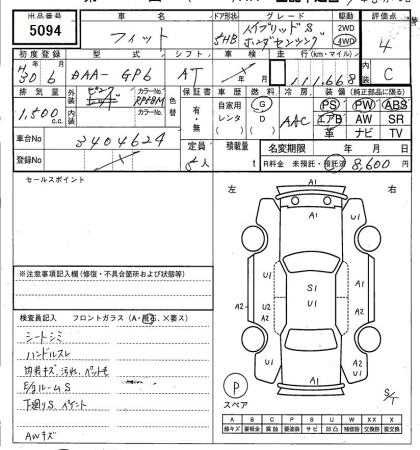 出品番号 車名 ドア形状 グレード 駆動 評価点
5094 フィット 5HB ハイブリッドS ホンダセンシング 2WD 4WD 4
初度登録 型式 シフト 車検 走行(km・マイル) 内装
30 6 DAA-GP6 AT 年 月 111,668 C
排気量 外装 カラーNo. 色替 保証書 車歴 燃料 冷房 装備(純正部品に限る)
1,500 c.c. RP48M 有・無 自家用 レンタ G D AAC PS PW ABS
内装 カラーNo. エアB AW SR
革 ナビ TV
車台No 3404624 定員 積載量 名変期限 年 月 日
登録No 5人 t R料金 未預託・預託済 8,600円
セールスポイント
左 右
A1
U1 A1
A2 U2 A2 S1 U1 A1 A2
U1 U1
A1
※注意事項記入欄(修復・不具合箇所および状態等)
検査員記入 フロントガラス(A・飛石、×要ス)
シートシミ
ハンドルスレ
内装キズ、汚れ、
E/gルームS
下廻りS、ペイント
AWキズ
P
スペア
S/T
A B C P S U W XX X
線キズ 要板金 腐蝕 要塗装 サビ 凹凸 補修跡 交換済 要交換